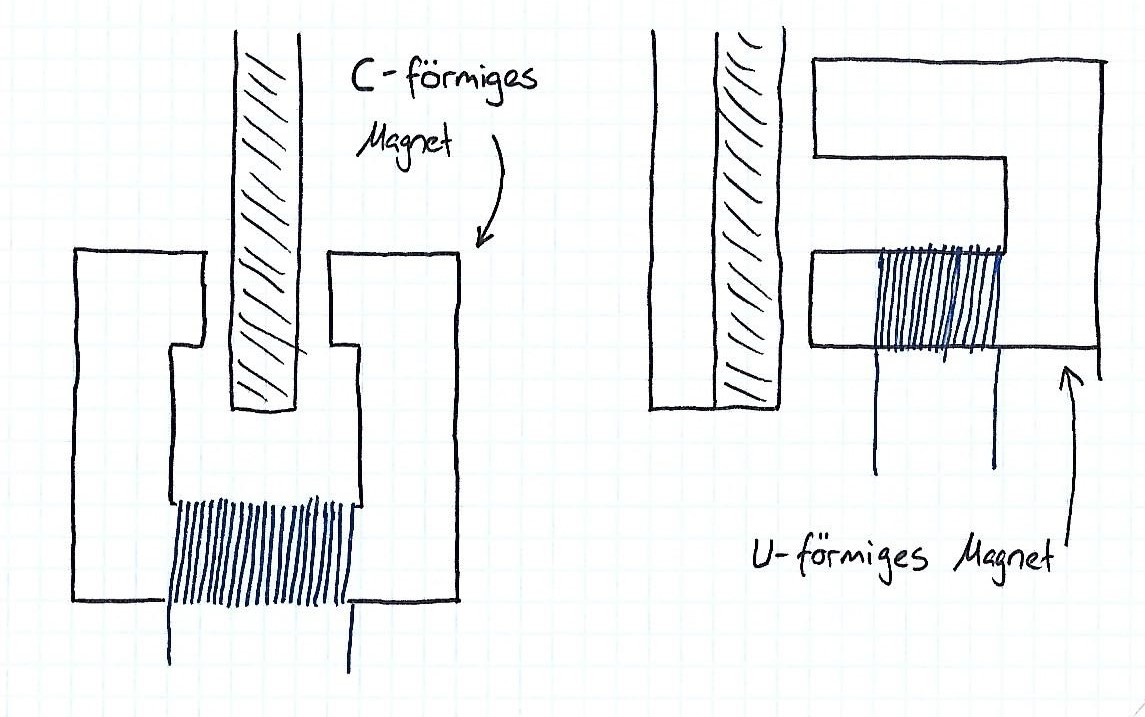 C-förmiges
Magnet
U-förmiges Magnet